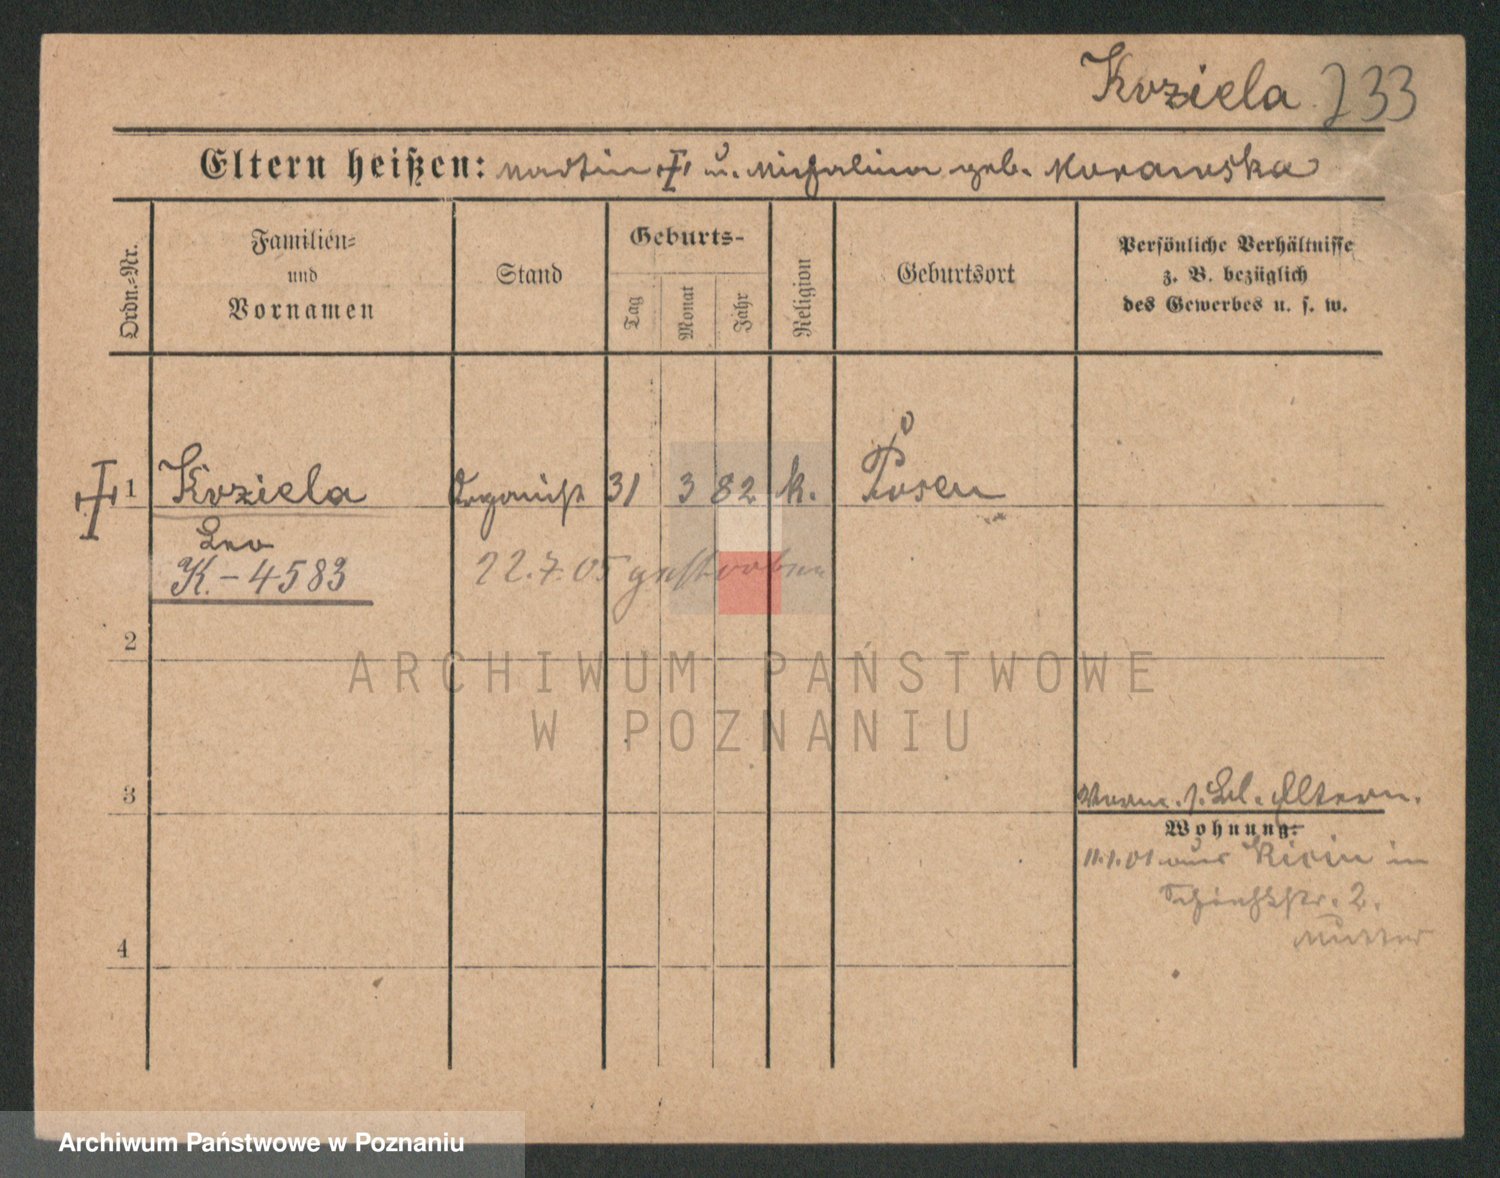 Koziela 733
Eltern heißen: Martin † u. Michalina geb. Morawska
Ordn.-Nr.
Familien-
und
Vornamen
Stand
Geburts-
Tag
Monat
Jahr
Religion
Geburtsort
Persönliche Verhältnisse
z. B. bezüglich
des Gewerbes u. s. w.
† 1 Koziela Organist 31 3 82 k. Posen
Leo
K.-4583 22.7.05 gestorben
2
ARCHIWUM PAŃSTWOWE
W POZNANIU
3
Eltern.
Wohnung:
11.1.01 aus in
2.
Mutter
4
Archiwum Państwowe w Poznaniu